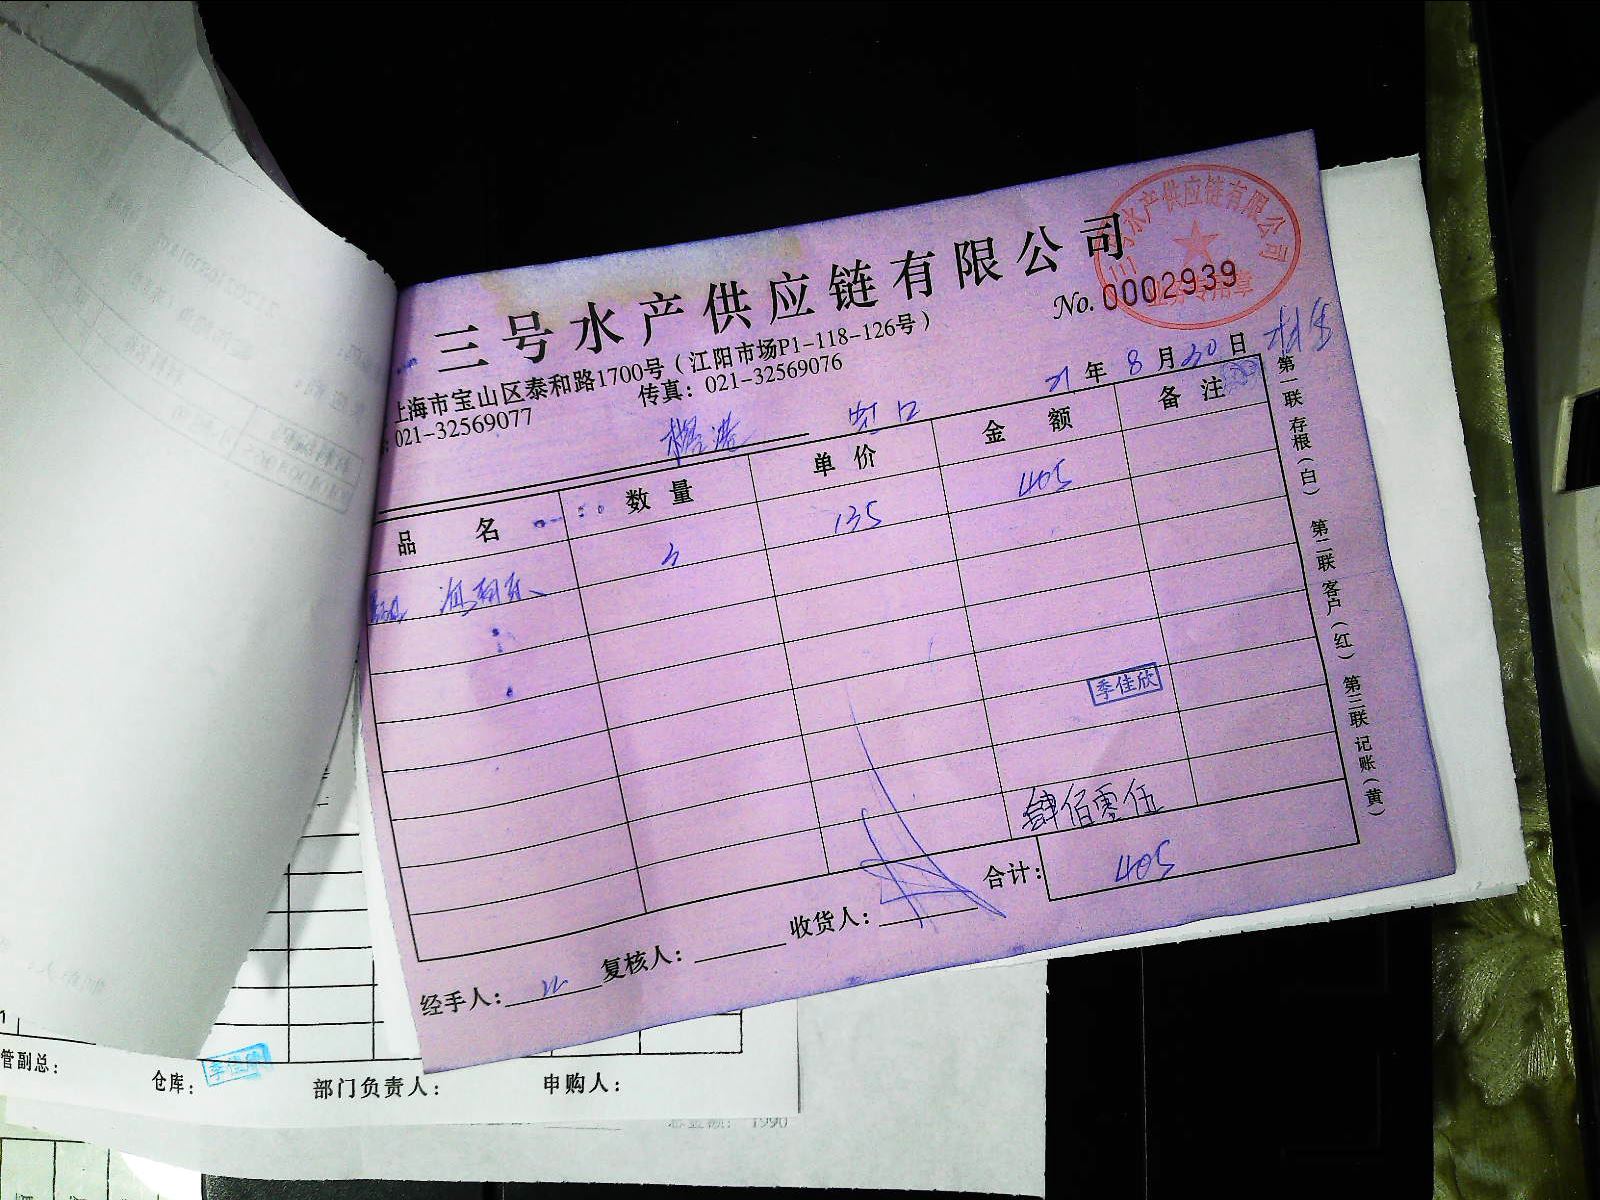 三号水产供应链有限公司
三号水产供应链有限公司
No. 0002939
上海市宝山区泰和路1700号（江阳市场P1-118-126号）
021-32569077 传真：021-32569076
21 年 8 月 30 日
虹口
品 名 数 量 单 价 金 额 备 注
3 135 405
季佳欣
肆佰零伍
合计： 405
经手人： 复核人： 收货人：
第一联 存根（白） 第二联 客户（红） 第三联 记账（黄）
管副总： 仓库： 季佳欣 部门负责人： 申购人：
1990